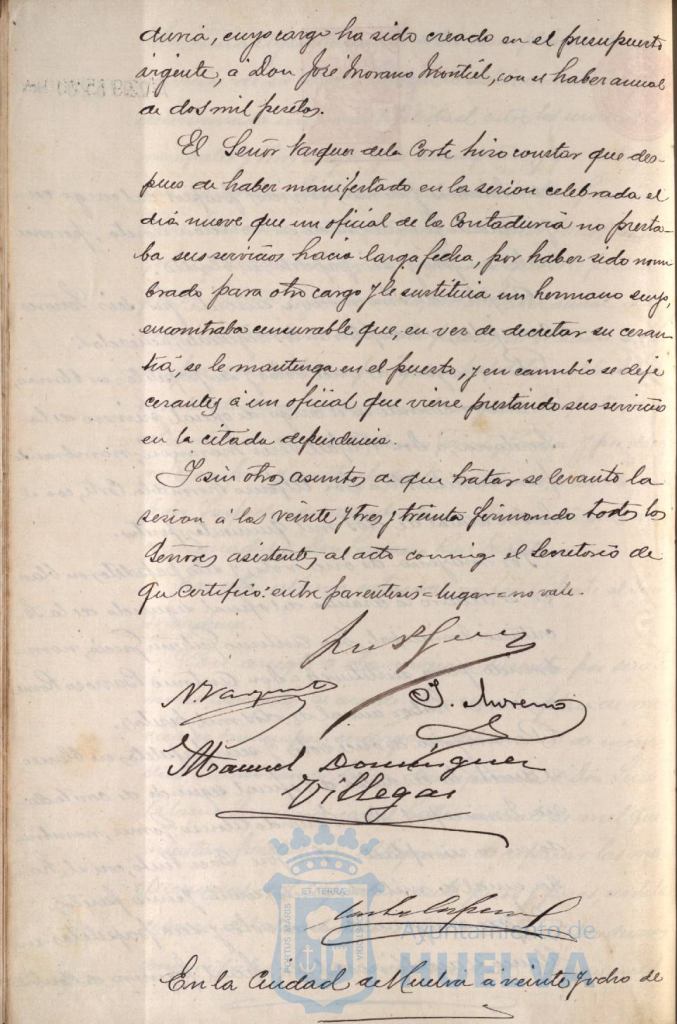 duria, cuyo cargo ha sido creado en el presupuesto
vigente, á Don José Morano Montiel, con el haber anual
de dos mil pesetas.
El Señor Vazquez de la Corte hizo constar que des-
pues de haber manifestado en la sesion celebrada el
dia nueve que un oficial de la Contaduria no presta-
ba sus servicios hacia larga fecha, por haber sido nom
brado para otro cargo y le sustituia un hermano suyo,
encontraba censurable que, en vez de decretar su cesan-
tia, se le mantenga en el puesto, y en cambio se deje
cesantes á un oficial que viene prestando sus servicios
en la citada dependencia.
Y sin otros asuntos de que tratar se levantó la
sesion á las veinte y tres y treinta firmando todos los
Señores asistentes al acto conmigo el Secretario de
que certifico: entre parentesis = lugar = no vale.
N. Vazquez
J. Moreno
Manuel Dominguez
Villegas
ET TERRÆ
PORTUS MARIS
CUSTODIA
Ayuntamiento de
HUELVA
En la Ciudad de Huelva á veinte y ocho de